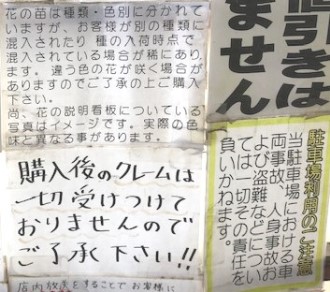 花の苗は種類・色別に分かれてい
ますが、お客様が別の種類に
混入されたり 種の入荷時点で
混入されている場合が稀にあり
ます。違う色の花が咲く場合が
ありますのでご了承の上ご購入
下さい。
尚、花の説明看板についている
写真はイメージです。実際の色
味と異なる事があります。
値引きは
ません
購入後のクレームは
一切受けつけて
おりませんので
ご了承下さい!!
駐車場利用のご注意
当駐車場における車
両事故、人身事故お
よび盗難などについ
ては一切その責任を
負いかねます。
店内放送をすることでお客様に